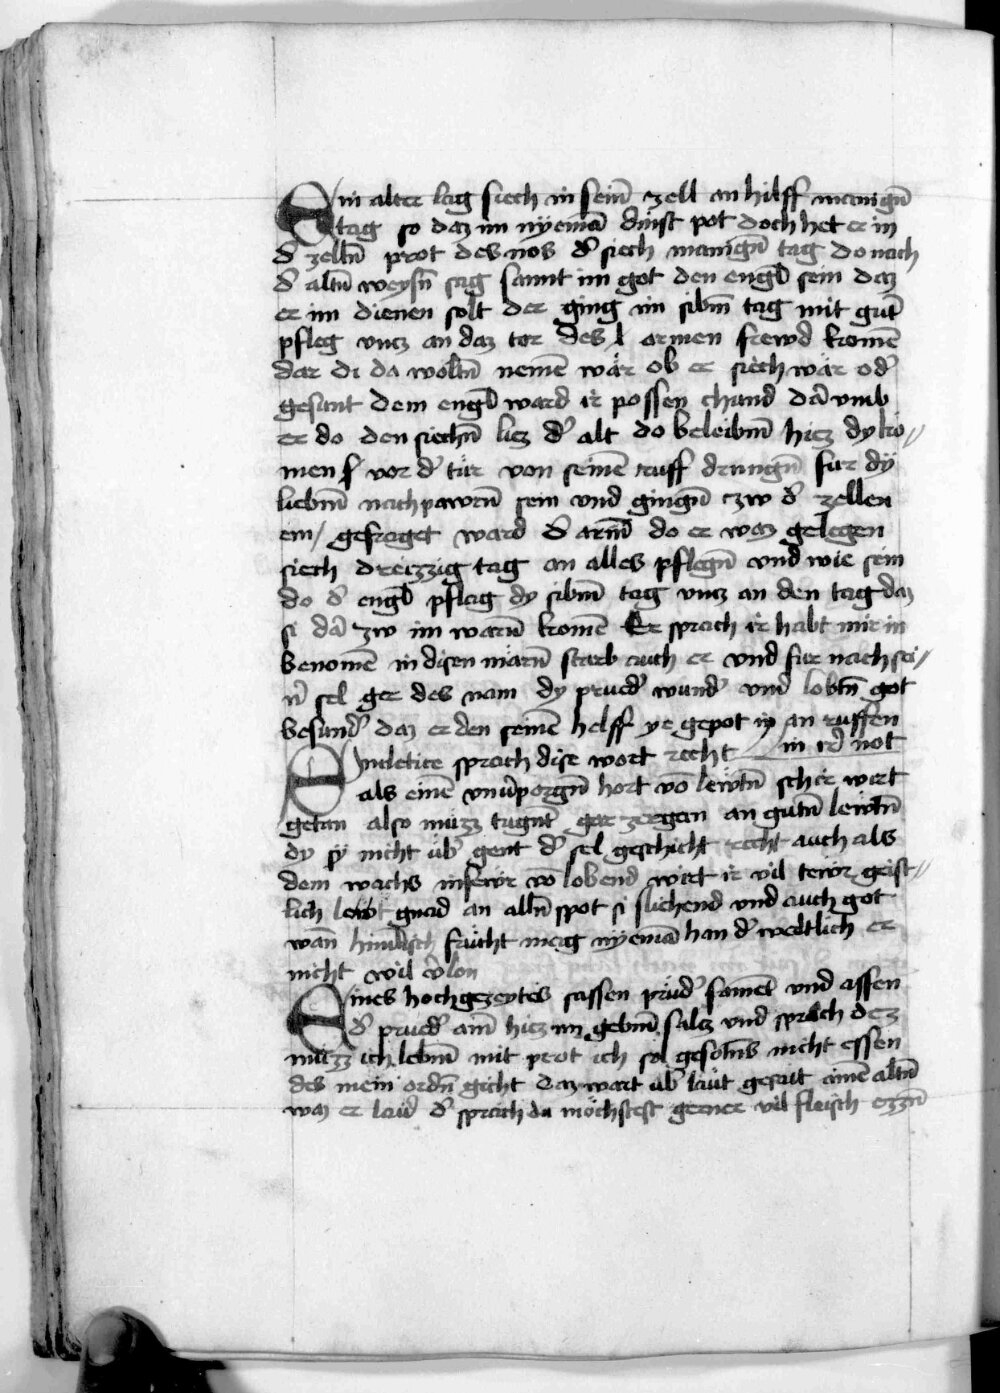 Ein alter lag siech in seinē zell an hilff manigñ
tag so daz im nyemā dinst pot doch het er in
d' zelln̄ prot des nos d' siech manigñ tag do nach
d' altñ weysñ sag sannt im got den engl̄ sein daz
er im dienen solt der ging im sibm̄ tag mit gut'
pfleg vncz an daz tor des l armen frewd komē
dar di da woltn̄ nemē wär ob er siech wär od'
gesunt dem engl̄ ward ir possen chund dā vmb
er do den siechñ liez d' alt do beleibm̄ hiez dy ko //
men vor d' tür von seinē ruff drungñ für dy
liebm̄ nachpawrñ sein vnd gingñ zw d' zellen
ein / gefraget ward d' arm̄ do er waz gelegen
siech dreizzig tag an alles pflegñ vnd wie sein
do d' engl̄ pflag dy sibm̄ tag vncz an den tag daz
si dā zw im warñ komē Er sprach ir habt mir in
benomē in disen märñ starb auch er vnd für nach sei /
n' sel ger des nam dy prued' wund' vnd lobtn̄ got
besund' daz er den seinē helff ye gepot in an ruffen
in ir' not
Sincletice sprach dise wort recht
als einē vnu'porgñ hort vō lewtn̄ schir wirt
getan also muzz tugnt gar zergan an gutñ lewtn̄
dy sy nicht üb' gent d' sel geschicht recht auch als
dem wachs in fewr vō lobend wirt ir vil tewr geist //
lich lewt gnad an alln̄ spot si sliehend vnd auch got
wan himlisch frücht mag nyemā han d' weltlich er
nicht wil v'lon
Eines hochgezeytes sassen prüd' samet vnd assen
d' prued' ainē hiez im gebm̄ salcz vnd sprach dez
muzz ich lebm̄ mit prot ich sol gesotn̄s nicht essen
des mein ordñ gicht daz wart üb' laut gesait ainē altñ
waz er laut d' sprach du möchstest gerner vil fleisch ezzñ